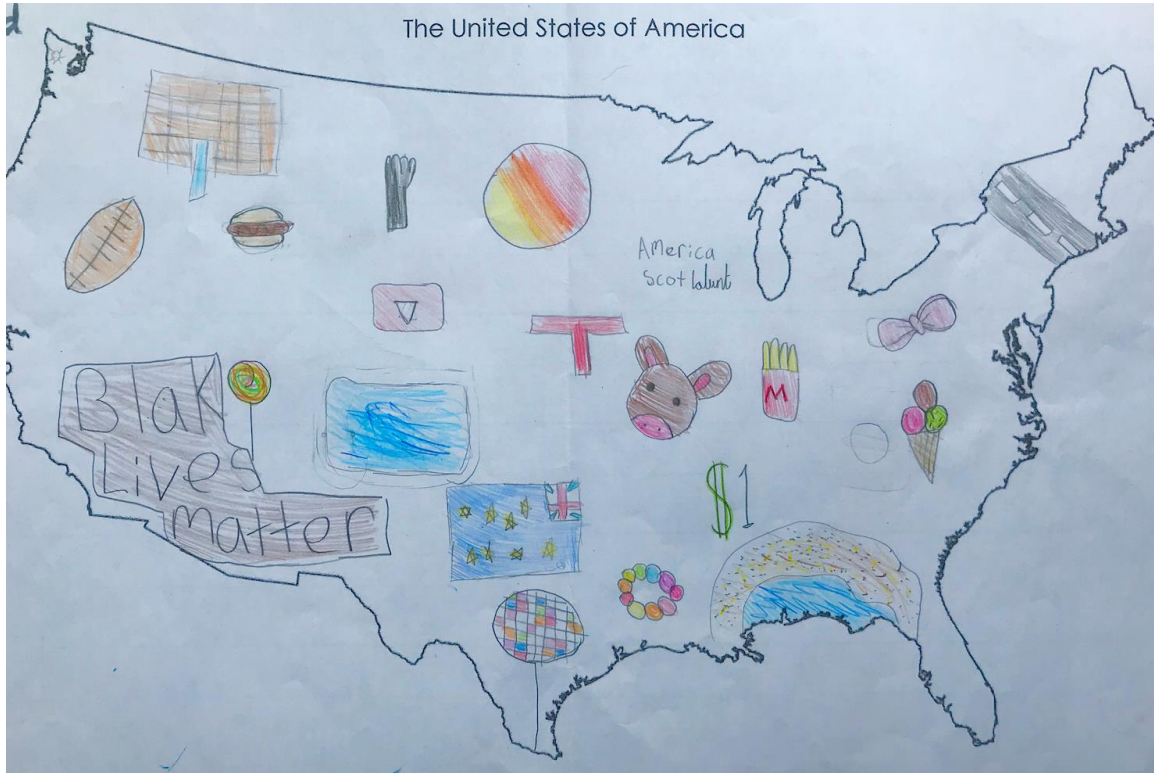 The United States of America
America
Scot
Blak
Lives
matter
M
$1